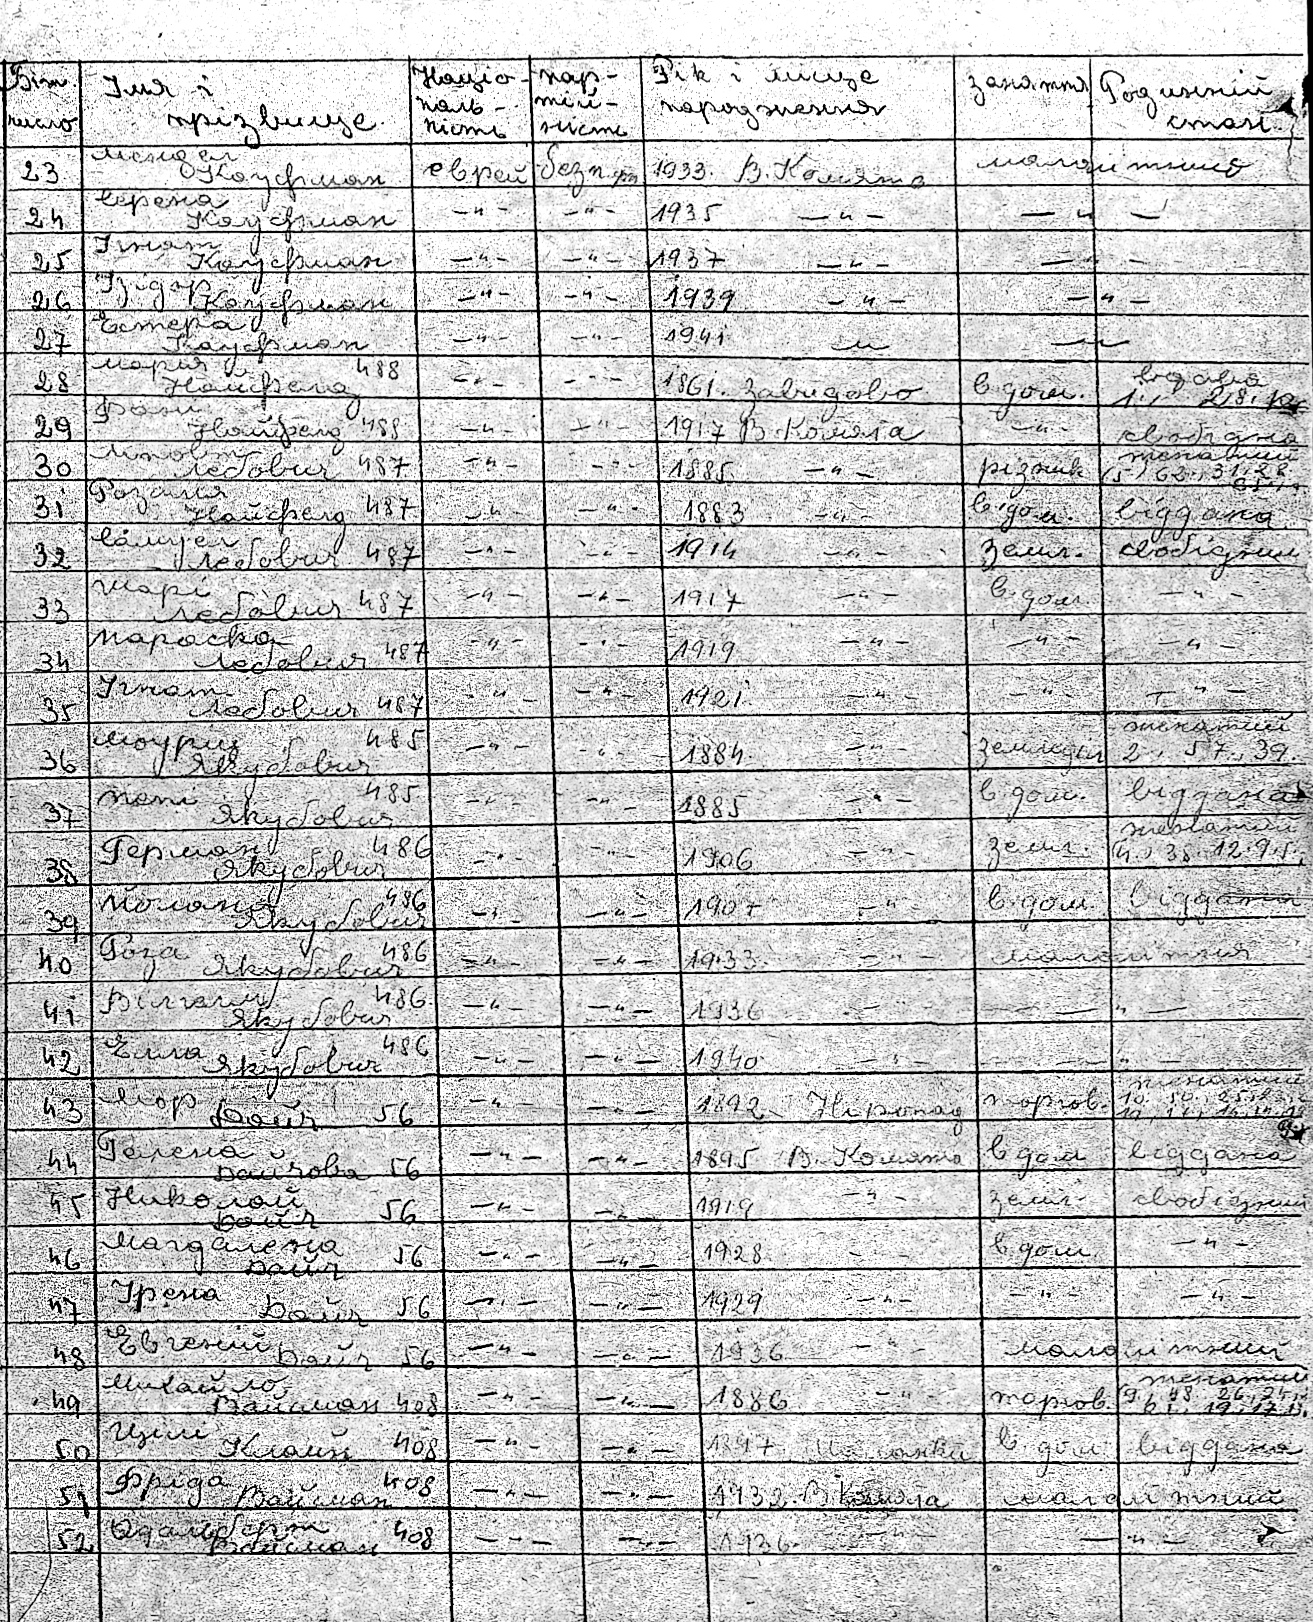 Біж. число Імя і прізвище Націо-наль-ність пар-тій-ність Рік і місце народження заняття Родинний стан.
23 Мендел Кауфман еврей безп. 1933. В. Комята малолітний
24 Серена Кауфман —"— —"— 1935 —"— —"—
25 Ігнат Кауфман —"— —"— 1937 —"— —"—
26 Ізідор Кауфман —"— —"— 1939 —"— —"—
27 Естера Кауфман —"— —"— 1941 —"— —"—
28 Марія 488 —"— —"— 1861. Завидово в дом. вдова
29 Найфелд 488 —"— —"— 1917 В. Комята —"— свобідна
30 Лебович 487 —"— —"— 1885 —"— різник женатий
31 Розалія Найфелд 487 —"— —"— 1883 —"— в дом. віддана
32 Самуел Лебович 487 —"— —"— 1914 —"— земл. свобідний
33 Шарі Лебович 487 —"— —"— 1917 —"— в дом. —"—
34 Мараска Лебович 487 —"— —"— 1919 —"— —"— —"—
35 Ігнат Лебович 487 —"— —"— 1921 —"— —"— —"—
36 Моуриц 485 Якубович —"— —"— 1884 —"— женатий 2., 57, 39.
37 485 Якубович —"— —"— 1885 —"— в дом. віддана
38 Герман 486 Якубович —"— —"— 1906 —"— земл. женатий
39 Йолана 486 Якубович —"— —"— 1907 —"— в дом. віддана
40 Роза 486 Якубович —"— —"— 1933. —"— малолітня
41 Вілгелм 486 Якубович —"— —"— 1936 —"— —"—
42 Елла 486 Якубович —"— —"— 1940 —"— —"—
43 Мор Дайч 56 —"— —"— 1892 торгов. женатий
44 Гелена Дайчова 56 —"— —"— 1895 В. Комята в дом віддана
45 Николай Дайч 56 —"— —"— 1919 —"— земл. свобідний
46 Магдалена Дайч 56 —"— —"— 1928 в дом. —"—
47 Ірена Дайч 56 —"— —"— 1929 —"— —"— —"—
48 Евгений Дайч 56 —"— —"— 1936 —"— малолітний
49 Михайло Вайсман 408 —"— —"— 1886 —"— торгов. женатий
50 Цілі Клайн 408 —"— —"— 1897 в дом віддана
51 Фрида 408 Вайсман —"— —"— 1932 В Комята малолітний
52 Одальберт Вайсман 408 —"— —"— 1936. —"—